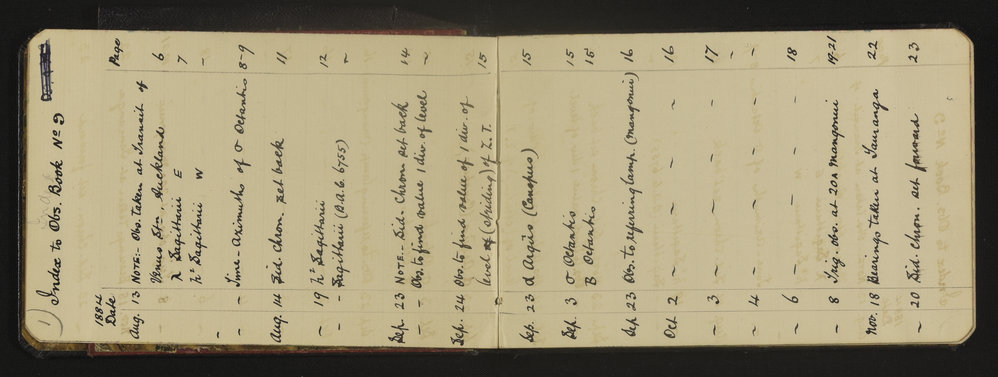 1) Index to Obs. Book Nº 9
1884
Date Page
Aug. 13 NOTE:- Obs. taken at Transit of 6
Venus Stn, Auckland
λ Sagittarii E 7
- h² Sagittarii W -
- - Time - Azimuths of σ Octantis 8-9
Aug. 14 Sid. Chron. set back 11
~ 19 h² Sagittarii 12
~ - Sagittarii (B.A.C. 6755) ~
Sep. 23 NOTE:- Sid. Chron. set back 14
- - Obs. to find value 1 div. of level ~
Sep. 24 Obs. to find value of 1 div. of
level (striding) of Z.T. 15
Sep. 23 α Argûs (Canopus) 15
Sep. 3 σ Octantis 15
B Octantis 15
Sep. 23 Obs. to referring lamp. (Mangonui) 16
Oct 2 ~ ~ ~ ~ 16
~ 3 ~ - - ~ 17
~ 4 ~ - - - ~
~ 6 ~ - - - 18
~ 8 Trig. obs. at 20A Mangonui 19-21
Nov. 18 Bearings taken at Tauranga 22
~ 20 Sid. chron. set forward 23